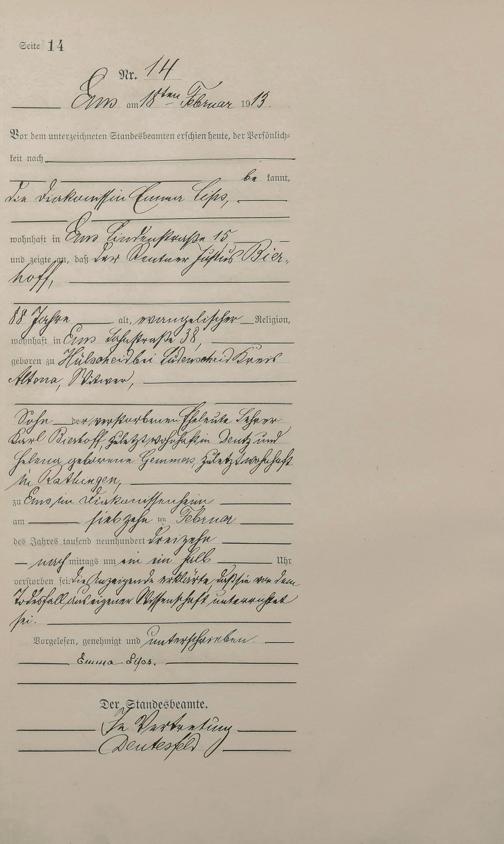 Seite 14
Nr. 14
Ems am 18ten Februar 1913.
Vor dem unterzeichneten Standesbeamten erschien heute, der Persönlich-
keit nach
be kannt,
die Diakonissin Emma Lips,
wohnhaft in Ems Lindenstraße 15
und zeigte an, daß der Rentner Justus Bier-
hoff,
88 Jahre alt, evangelischer Religion,
wohnhaft in Ems Bahnstraße 38,
geboren zu Hülscheid bei Lüdenscheid Kreis
Altona, Witwer,
Sohn der verstorbenen Eheleute Lehrer
Karl Bierhoff, zuletzt wohnhaft in Deutz und
Helena geborene zuletzt wohnhaft
in Ratingen,
zu Ems, im Diakonissenheim
am siebzehn ten Februar
des Jahres tausend neunhundert dreizehn
nach mittags um ein ein halb Uhr
verstorben sei. die Anzeigende erklärte, daß sie von dem
Todesfall aus eigener Wissenschaft unterrichtet
sei.
Vorgelesen, genehmigt und unterschrieben
Emma Lips.
Der Standesbeamte.
In Vertretung